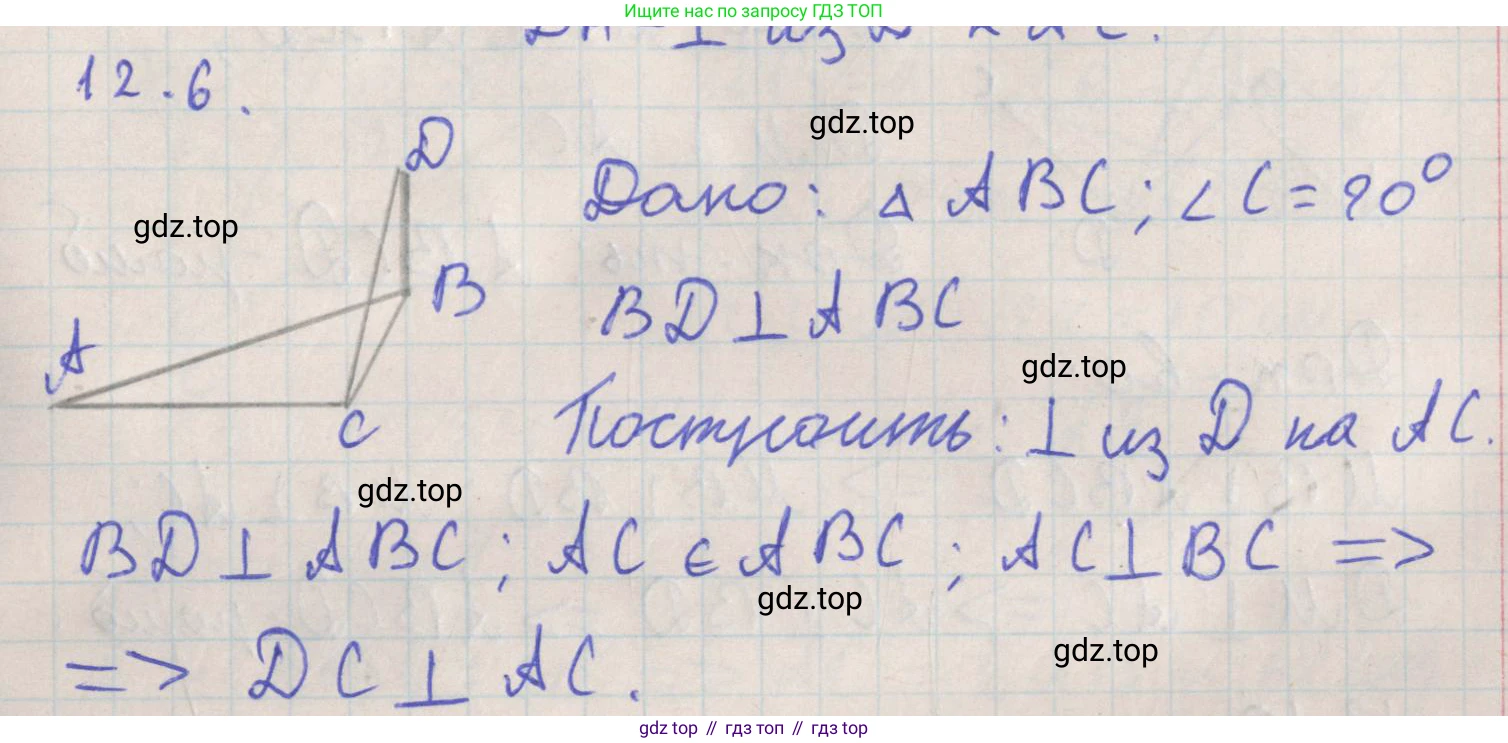 Ищите нас по запросу ГДЗ ТОП
12.6.
gdz.top
D
Дано: △ ABC; ∠ C = 90°
gdz.top
B
BD ⊥ ABC
A
gdz.top
C
Построить: ⊥ из D на AC.
gdz.top
BD ⊥ ABC; AC ∈ ABC; AC ⊥ BC =>
gdz.top
gdz.top
=> DC ⊥ AC.
gdz.top // гдз топ // гдз top